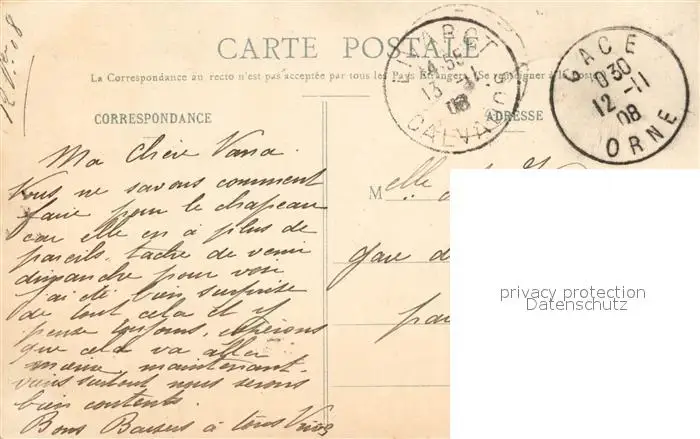 CARTE POSTALE
La Correspondance au recto n'est pas acceptée par tous les Pays Étrangers (Se renseigner à la Poste
CORRESPONDANCE
ADRESSE
LIVAROT
13
08
CALVADOS
GACE
10 30
12 - 11
08
ORNE
Ma Chère
Vous ne savons comment
faire pour le chapeau
car elle en a plus de
pareils, tache de venir
dimanche pour voir
j'ai été bien surprise
de tout cela et j'y
pense toujours, espérons
que cela va aller
mieux, maintenant.
venir surtout nous serons
bien contents.
Bons Baisers à tous
Melle
gare d
par
privacy protection
Datenschutz